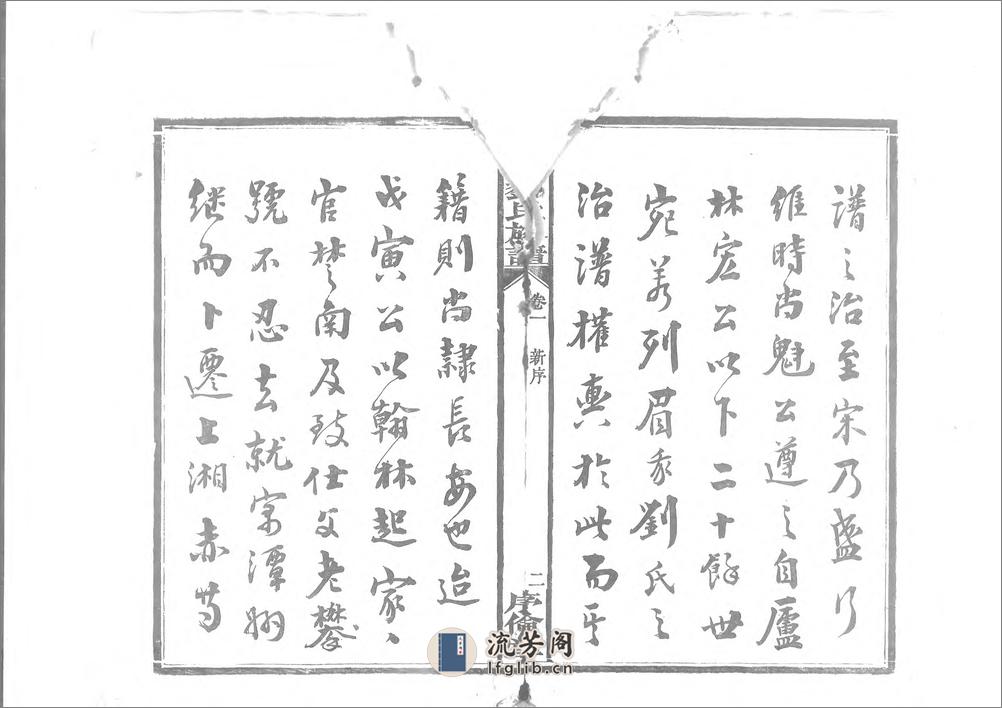 譜之治至宋乃盛行
維時尚魁公遵之自廬
林宏公以下二十餘世
宛若列眉我劉氏之
治譜權輿於此而乎
氏族譜
卷一 新序
二
序倫
籍則尚隸長安也迨
戊寅公以翰林起家
官楚南及致仕父老攀
號不忍去就家潭州
繼而卜遷上湘赤
流芳阁
lfglib.cn